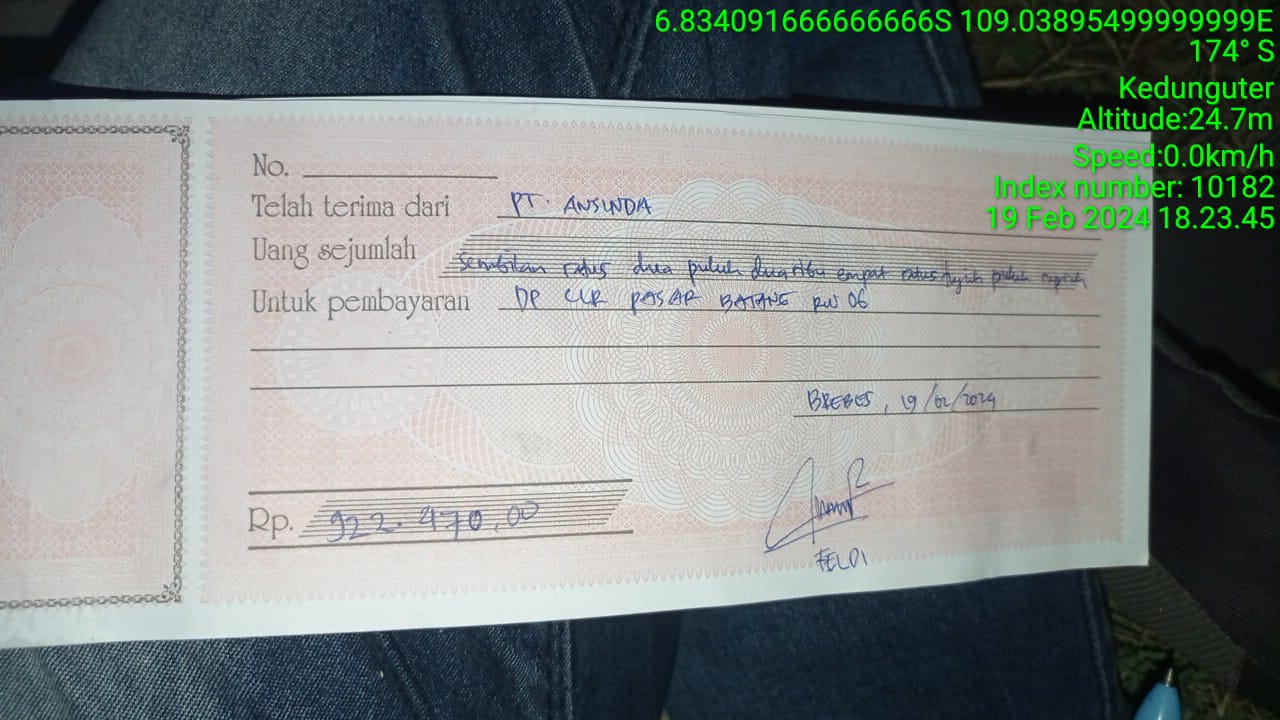 6.834091666666666S 109.03895499999999E
174° S
Kedunguter
Altitude:24.7m
Speed:0.0km/h
Index number: 10182
19 Feb 2024 18.23.45
No.
Telah terima dari PT. ANSINDA
Uang sejumlah Sembilan ratus dua puluh dua ribu empat ratus tujuh puluh rupiah
Untuk pembayaran DP CLR PASAR BATANG RW 06
BREBES, 19/02/2024
Rp. 922.470,00
FELDI